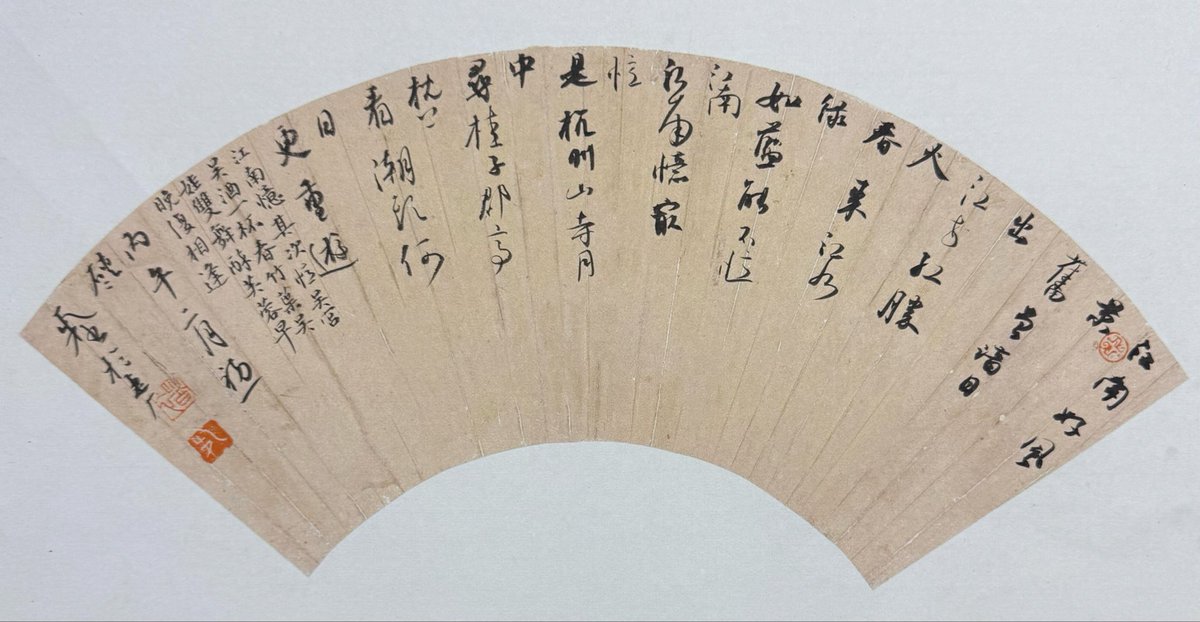 江南好風
景
舊曾諳日
出
江花紅勝
火
春來江水
綠
如藍能不憶
江南
江南憶最
憶
是杭州山寺月
中
尋桂子郡亭
枕上
看潮頭何
日
更重遊
江南憶其次憶吳宮
吳酒一杯春竹葉吳
娃雙舞醉芙蓉早
晚復相逢
丙午二月初